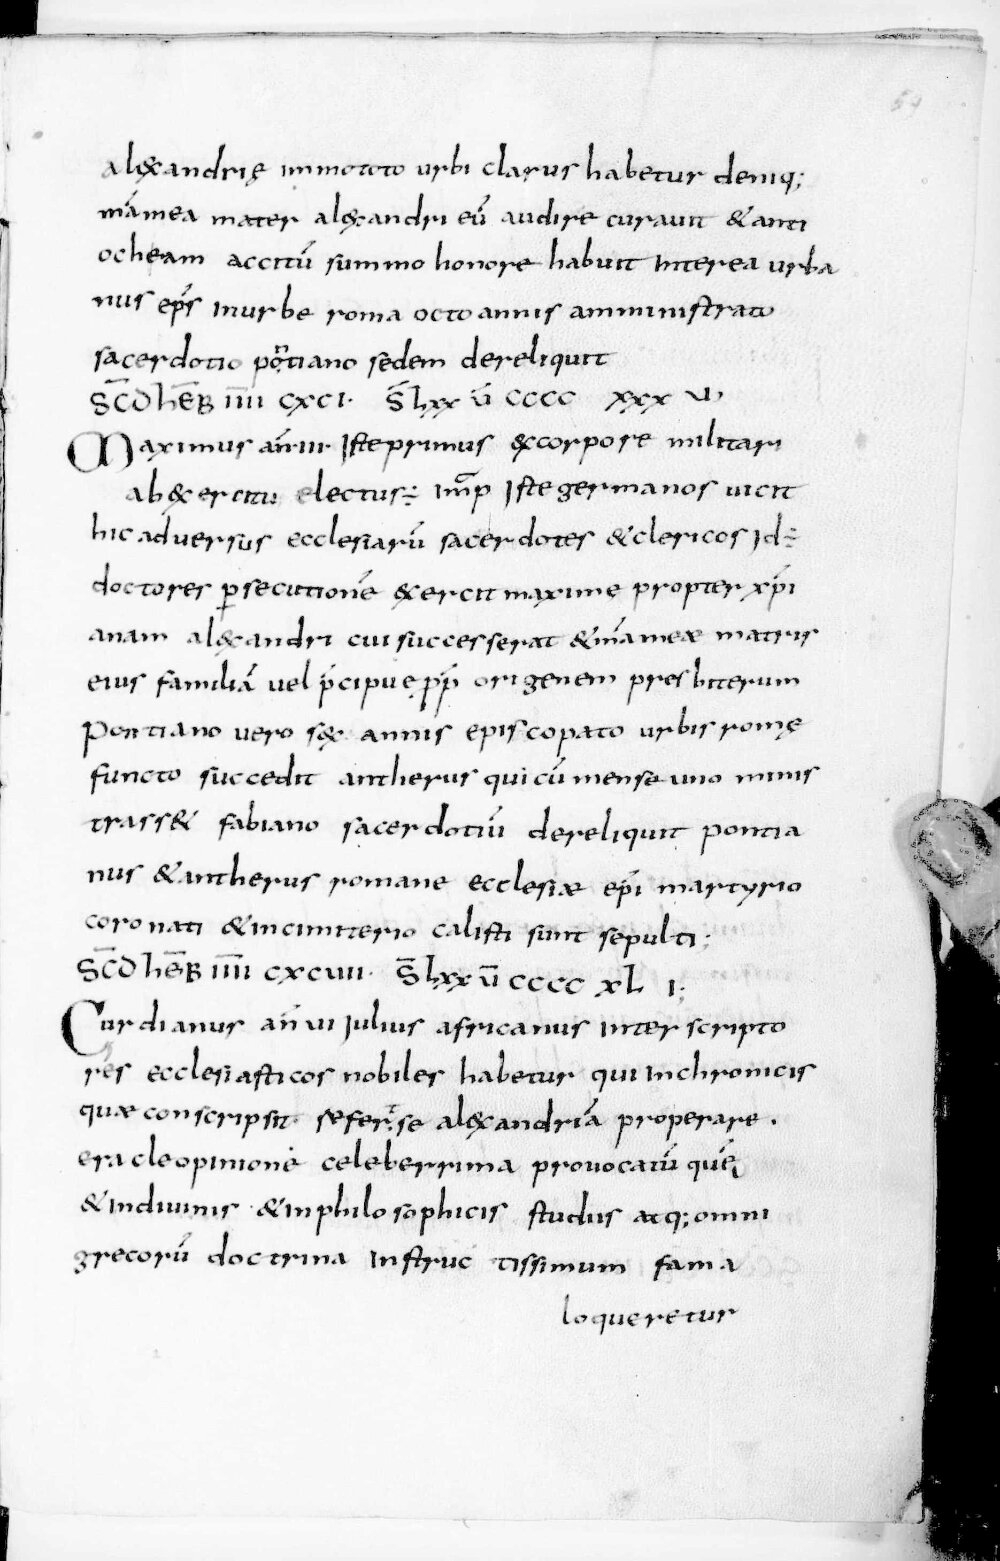 54
al&xandrię immototo urbi clarus habetur deniq;
mãmea mater al&xandri eũ audire curauit &anti
ocheam accitũ summo honore habuit Interea urba
nus ep̃s Inurbe roma octo annis amminiſtrato
sacerdotio põtiano sedem dereliquit
S̄C̄D hĒB̄ I̅I̅I̅I̅ CXCI· S̄ lxx ū CCCC XXX VI,
Maximus añ·III· Iſteprimus &xcorpore militari
ab&xercitu electus÷ Im̃p Iſtegermanos uicit
hic aduersus ecclesiarũ sacerdotes &clericos Id÷
doctores ꝑsecutionẽ &xercit maxime propter xp̃i
anam al&xandri cui successerat &m̃ameæ matris
eius familiã uel p̃cipuę p̃p̃ origenem presbiterum
Pontiano uero s&x annis episcopato urbis romę
functo succedit antherus qui cũ mense uno minis
trass& fabiano sacerdotiũ dereliquit pontia
nus &antherus romane ecclesiæ ep̃i martyrio
coronati &incimiterio califti sunt sepulti;
S̄C̄D hĒB̄ I̅I̅I̅I̅ CXCVIII· S̄ lxx ū CCCC XL I;
Curdianus añ VI Iulius africanus Inter scripto
res ecclesiaſticos nobiles habetur qui Inchronicis
quæ conscripsit· sefert se al&xandriã properare.
eracleopinione celeberrima prouocatũ quẽ
&Indiuinis &Inphilosophicis ſtudiis atq; omni
grecorũ doctrina Inſtruc tissimum fama
loqueretur